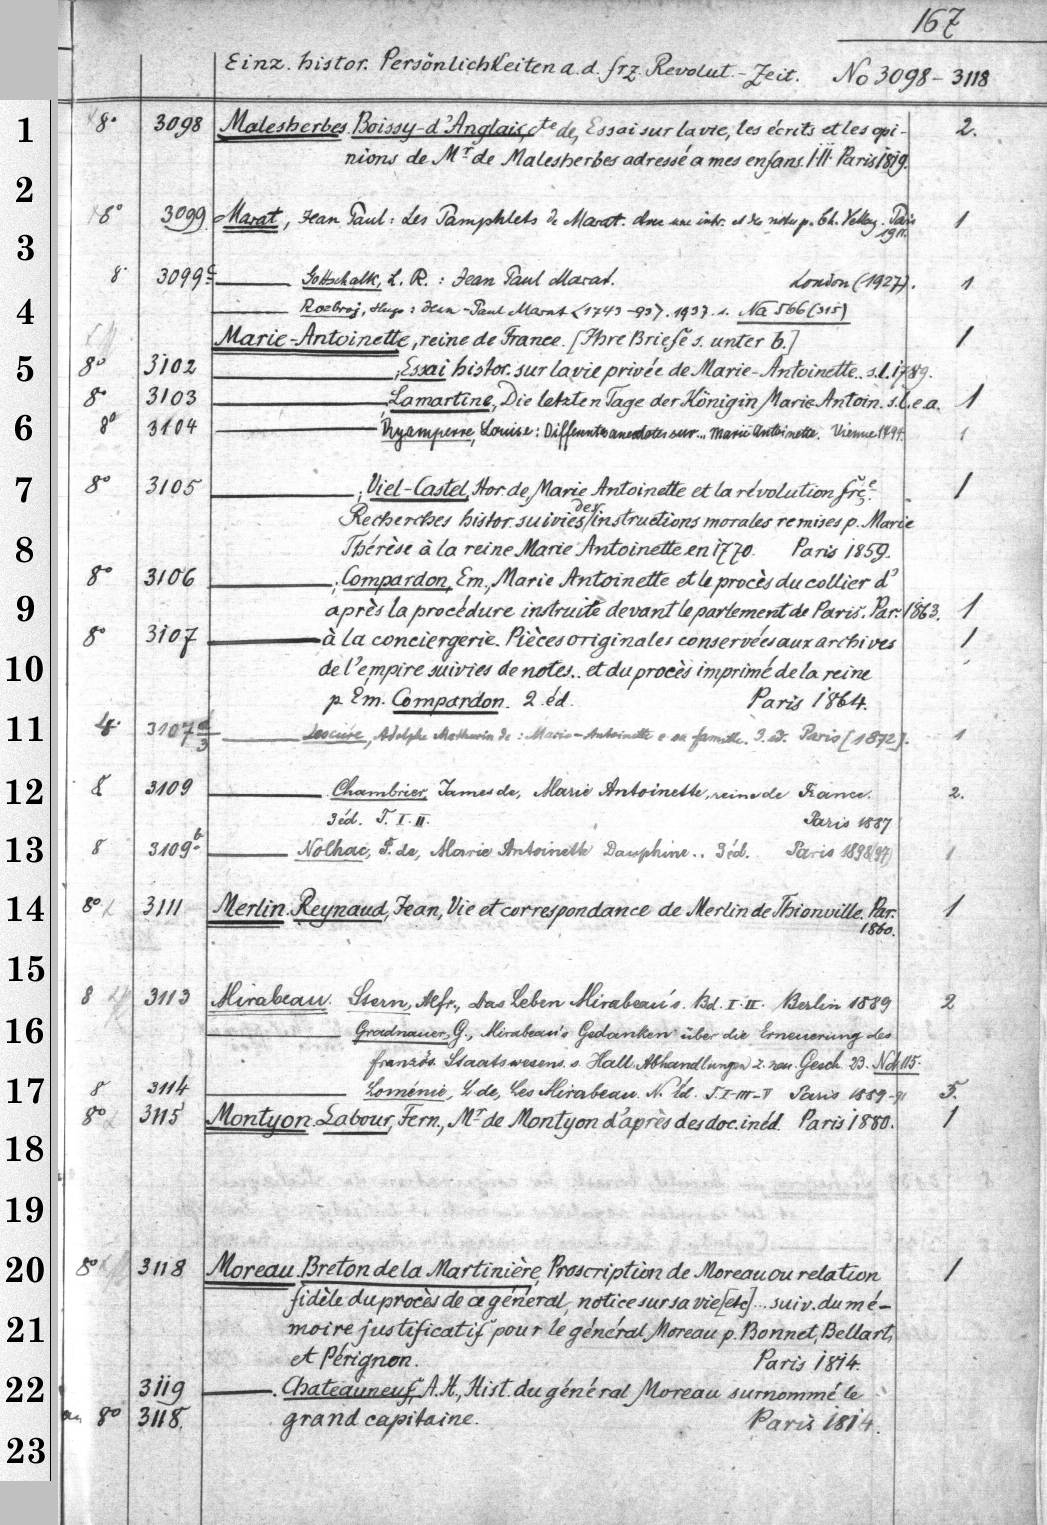 167
Einz. histor. Persönlichkeiten a. d. frz. Revolut.-Zeit. No 3098-3118
1 8° 3098 Malesherbes. Boissy-d'Anglais, Cte de, Essai sur la vie, les écrits et les opi- 2.
nions de Mr de Malesherbes adressé a mes enfans. I-II. Paris 1819.
2 8° 3099 Marat, Jean Paul: Les Pamphlets de Marat. Avec une intr. et des notes p. Ch. Vellay. Paris 1
3 1911.
8° 3099c Gottschalk, L. R.: Jean Paul Marat. London (1927). 1
4 Jean-Paul Marat <1743-93>. 1937. s. Na 566 (315)
Marie-Antoinette, reine de France. [Ihre Briefe s. unter b.] 1
5 8° 3102 ; Essai histor. sur la vie privée de Marie-Antoinette.. s.l. 1789.
8° 3103 Lamartine, Die letzten Tage der Königin Marie Antoin. s.l.e.a. 1
6 8° 3104 Louise: Differents anecdotes sur.. Marie Antoinette. Vienne 1794. 1
7 8° 3105 ; Viel-Castel, Hor. de, Marie Antoinette et la révolution frçe. 1
Recherches histor. suivies des instructions morales remises p. Marie
8 Thérèse à la reine Marie Antoinette en 1770. Paris 1859.
8° 3106 ; Compardon, Em., Marie Antoinette et le procès du collier d'
9 après la procédure instruite devant le parlement de Paris. Par. 1863. 1
8° 3107 à la conciergerie. Pièces originales conservées aux archives 1
10 de l'empire suivies de notes.. et du procès imprimé de la reine
p. Em. Compardon. 2. éd. Paris 1864.
11 4° 3107 d/3 Lescure, Adolphe Mathurin de: Marie-Antoinette e sa famille. 3. éd. Paris [1872]. 1
12 8 3109 Chambrier, James de, Marie Antoinette, reine de France. 2.
3 éd. T. I. II. Paris 1887
13 8 3109b Nolhac, P. de, Marie Antoinette Dauphine.. 3 éd. Paris 1898(97) 1
14 8° 3111 Merlin. Reynaud, Jean, Vie et correspondance de Merlin de Thionville. Par. 1
1860.
15
8 3113 Mirabeau. Stern, Alfr., Das Leben Mirabeau's. Bd. I. II. Berlin 1889 2
16 Gradnauer, G., Mirabeau's Gedanken über die Erneuerung des
französ. Staatswesens s. Hall. Abhandlungen z. neu. Gesch. 23. Nd 115.
17 8 3114 Loménie, L. de, Les Mirabeau. N. éd. T. I-III-V Paris 1889-91 5.
8° 3115 Montyon. Labour, Fern., Mr de Montyon d'après des doc. inéd. Paris 1880. 1
18
19
20 8° 3118 Moreau. Breton de la Martinière, Proscription de Moreau ou relation 1
fidèle du procès de ce général, notice sur sa vie [etc] ... suiv. du mé-
21 moire justificatif pour le général Moreau p. Bonnet, Bellart,
et Pérignon. Paris 1814.
22 3119 Chateauneuf, A. H., Hist. du général Moreau surnommé le
an 8° 3118. grand capitaine. Paris 1814.
23